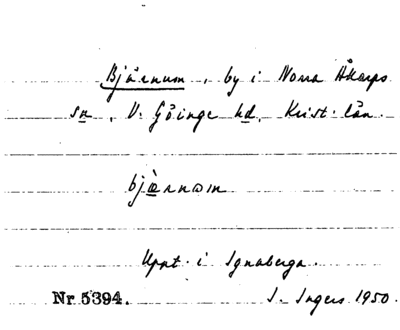 Bjärnum, by i Norra Åkarps
sn, V. Göinge hd, Krist. län.
bjärnom
Uppt. i Ignaberga.
Nr 5394. I. Ingers 1950.